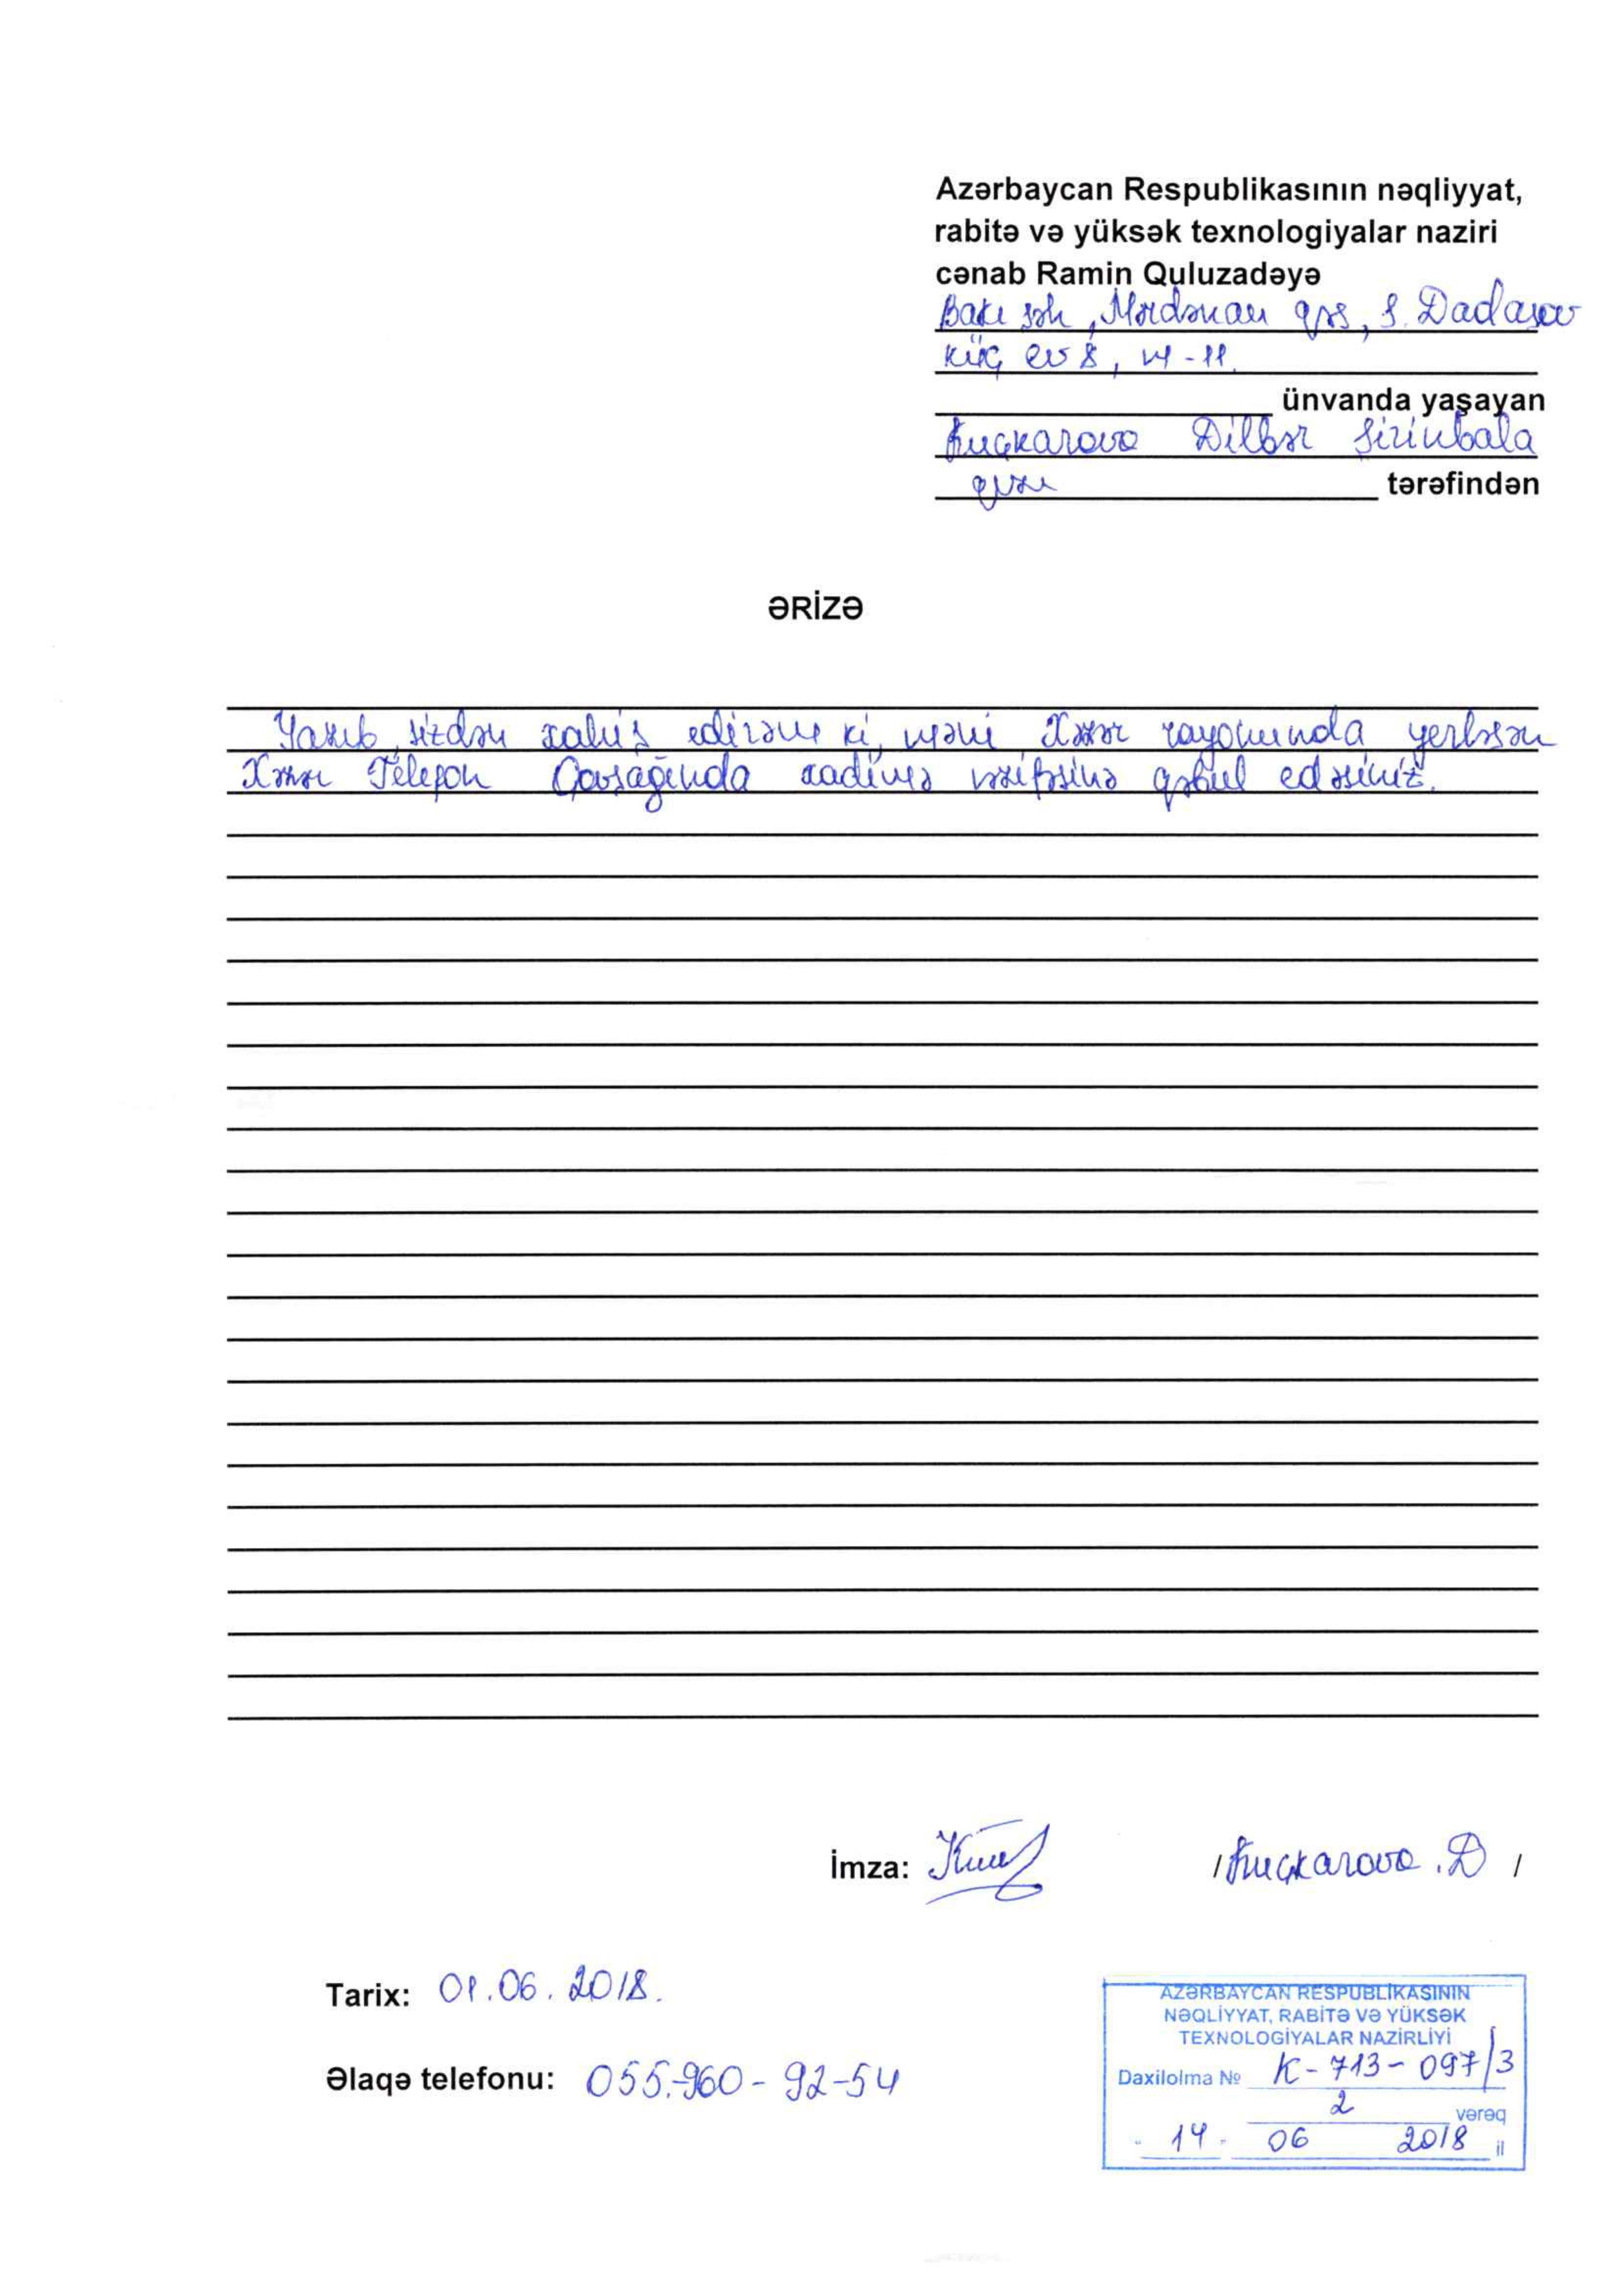 Azərbaycan Respublikasının nəqliyyat,
rabitə və yüksək texnologiyalar naziri
cənab Ramin Quluzadəyə
Bakı şəh, Mərdəkan qəs, S. Dadaşov
küç ev 8, m-11.
ünvanda yaşayan
Kuçkarova Dilbər Şirinbala
qızı tərəfindən
ƏRİZƏ
Yazıb sizdən xahiş edirəm ki, məni Xəzər rayonunda yerləşən
Xəzər Telefon Qovşağında xadimə vəzifəsinə qəbul edəsiniz.
İmza: / Kuçkarova .D /
Tarix: 01.06.2018.
Əlaqə telefonu: 055-960-92-54
AZƏRBAYCAN RESPUBLİKASININ
NƏQLİYYAT, RABİTƏ VƏ YÜKSƏK
TEXNOLOGİYALAR NAZİRLİYİ
Daxilolma № K-713-097/3
2 vərəq
"14" 06 2018 il